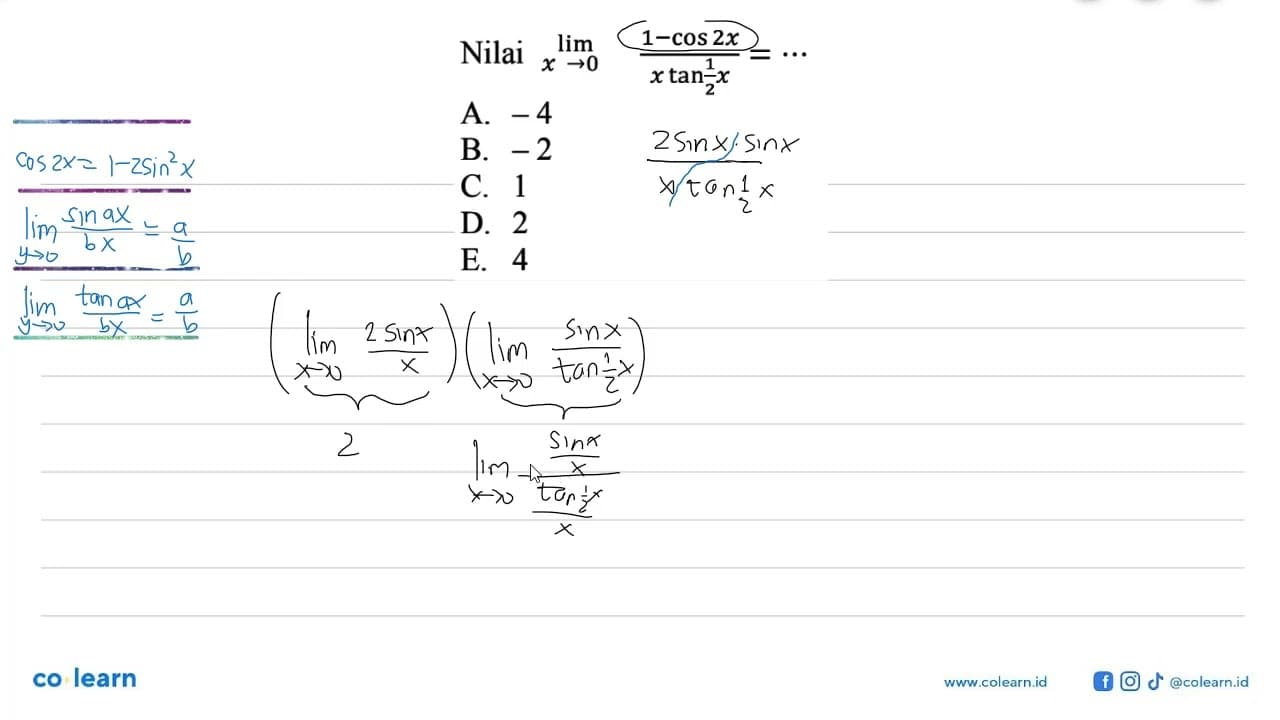 Nilai lim x→0 1−cos 2x / x tan 1/2 x = ⋯
A. −4
B. −2
C. 1
D. 2
E. 4
cos 2x = 1−2sin² x
lim y→0 sin ax / bx = a/b
lim y→0 tan ax / bx = a/b
2 sin x · sin x / x tan 1/2 x
(lim x→0 2 sin x / x) (lim x→0 sin x / tan 1/2 x)
2
lim x→0 sin x / x / tan 1/2 x / x
co learn
www.colearn.id
@colearn.id